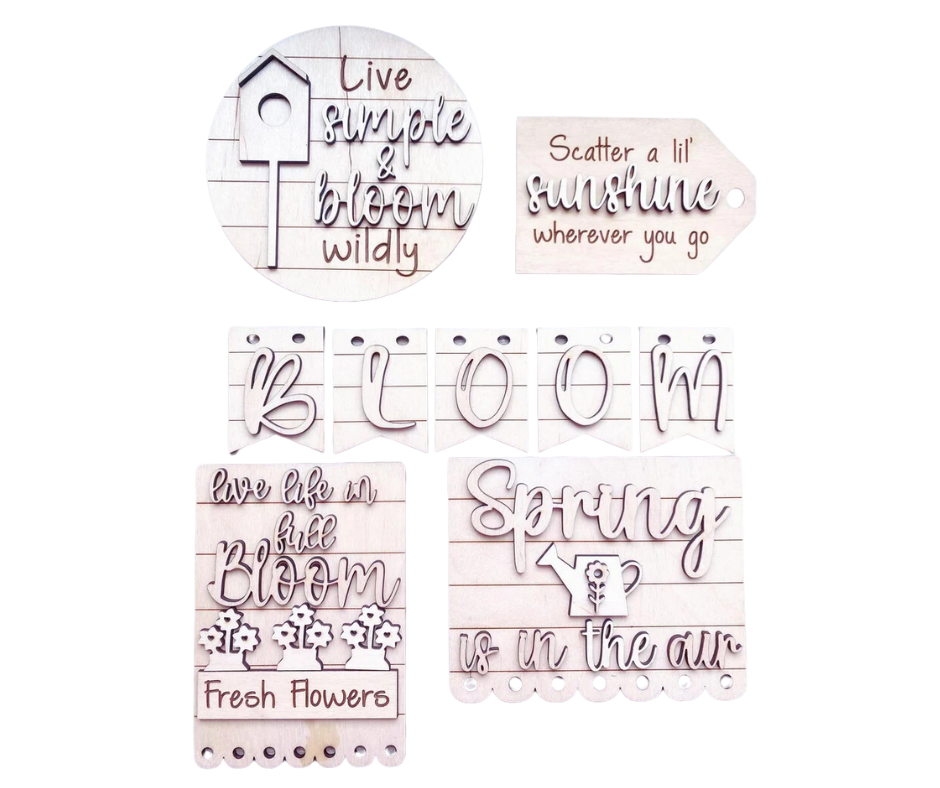 Live
simple
&
bloom
wildly
Scatter a lil'
sunshine
wherever you go
BLOOM
live life in
full
Bloom
Fresh Flowers
Spring
is in the air